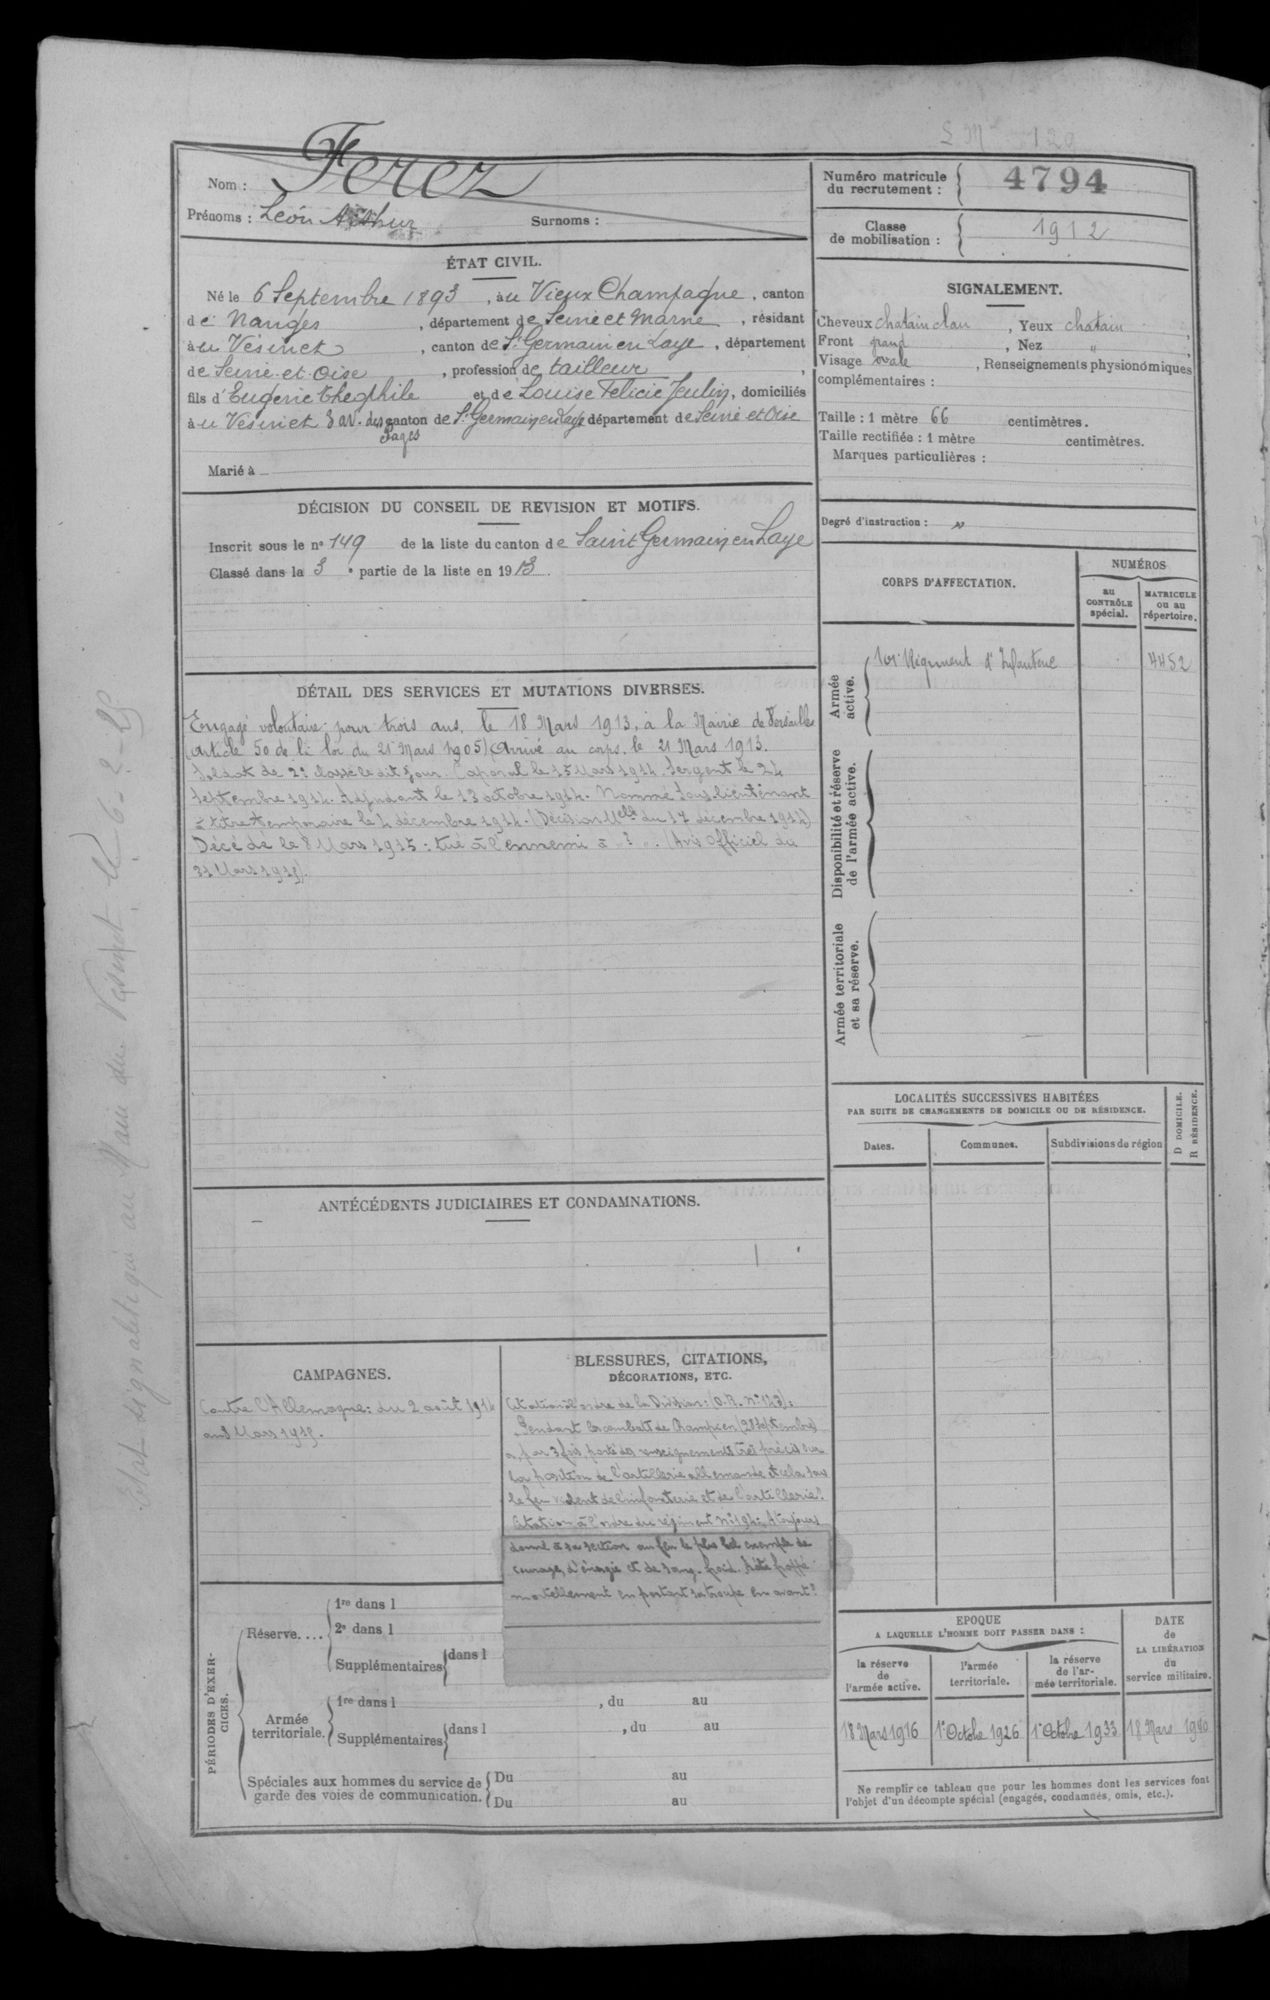 Nom : Ferez
Prénoms : Léon Arthur Surnoms :
Numéro matricule
du recrutement : 4794
Classe
de mobilisation : 1912
ÉTAT CIVIL.
Né le 6 Septembre 1893, à u Vieux Champagne, canton
de Nangis, département de Seine et Marne, résidant
à u Vésinet, canton de St Germain en Laye, département
de Seine et Oise, profession de tailleur,
fils d'Eugène Théophile et de Louise Félicie Jeulin, domiciliés
à u Vésinet 3 av. des Pages canton de St Germain en Laye département de Seine et Oise
Marié à
SIGNALEMENT.
Cheveux chatain clair, Yeux chatain,
Front grand, Nez "
Visage ovale, Renseignements physionomiques
complémentaires :
Taille : 1 mètre 66 centimètres.
Taille rectifiée : 1 mètre centimètres.
Marques particulières :
Degré d'instruction :
DÉCISION DU CONSEIL DE REVISION ET MOTIFS.
Inscrit sous le nº 149 de la liste du canton de Saint Germain en Laye
Classé dans la 3e partie de la liste en 1913.
DÉTAIL DES SERVICES ET MUTATIONS DIVERSES.
Engagé volontaire pour trois ans, le 18 Mars 1913, à la Mairie de Versailles
(Article 50 de la loi du 21 Mars 1905) Arrivé au corps, le 21 Mars 1913.
Soldat de 2e classe le dit jour. Caporal le 15 Mars 1914. Sergent le 24
Septembre 1914. Adjudant le 13 octobre 1914. Nommé Sous-lieutenant
à titre temporaire le 4 décembre 1914. (Décision Mlle du 17 décembre 1914)
Décédé le 8 Mars 1915 : tué à l'ennemi à " ? ". (Avis Officiel du
31 Mars 1915).
CORPS D'AFFECTATION.
NUMÉROS
au
CONTRÔLE
spécial.
MATRICULE
ou au
répertoire.
Armée
active.
101e Régiment d'Infanterie 4452
Disponibilité et réserve
de l'armée active.
Armée territoriale
et sa réserve.
LOCALITÉS SUCCESSIVES HABITÉES
PAR SUITE DE CHANGEMENTS DE DOMICILE OU DE RÉSIDENCE.
Dates. Communes. Subdivisions de région
D DOMICILE.
R RÉSIDENCE.
ANTÉCÉDENTS JUDICIAIRES ET CONDAMNATIONS.
CAMPAGNES.
Contre l'Allemagne : du 2 août 1914
au 8 Mars 1915.
BLESSURES, CITATIONS,
DÉCORATIONS, ETC.
Citation à l'ordre de la Division : (O.R. Nº 143) :
Pendant les combats de Champien (28 septembre)
a, par 3 fois, porté des renseignements très précis sur
la position de l'artillerie allemande et cela sous
le feu violent de l'infanterie et de l'artillerie.
Citation à l'ordre du régiment Nº 194 : A toujours
donné à sa section au feu le plus bel exemple de
courage, d'énergie et de sang-froid. A été frappé
mortellement en portant sa troupe en avant.
PÉRIODES D'EXER-
CICES.
Réserve....
1re dans l
2e dans l
Supplémentaires dans l
Armée
territoriale.
1re dans l , du au
Supplémentaires dans l , du au
Spéciales aux hommes du service de
garde des voies de communication.
Du au
Du au
EPOQUE
A LAQUELLE L'HOMME DOIT PASSER DANS :
la réserve
de
l'armée active.
l'armée
territoriale.
la réserve
de l'ar-
mée territoriale.
DATE
de
LA LIBÉRATION
du
service militaire.
18 Mars 1916 1er Octobre 1926 1er Octobre 1933 18 Mars 1940
Ne remplir ce tableau que pour les hommes dont les services font
l'objet d'un décompte spécial (engagés, condamnés, omis, etc.).
Etat signalétique au Maire du Vésinet le 6-2-25